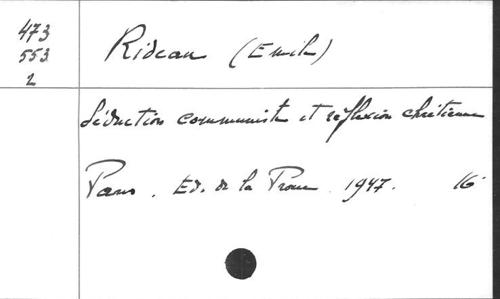 473
553
2
Rideau (Emile)
Séduction communiste et réflexion chrétienne
Paris. Ed. de la Proue. 1947. 16°